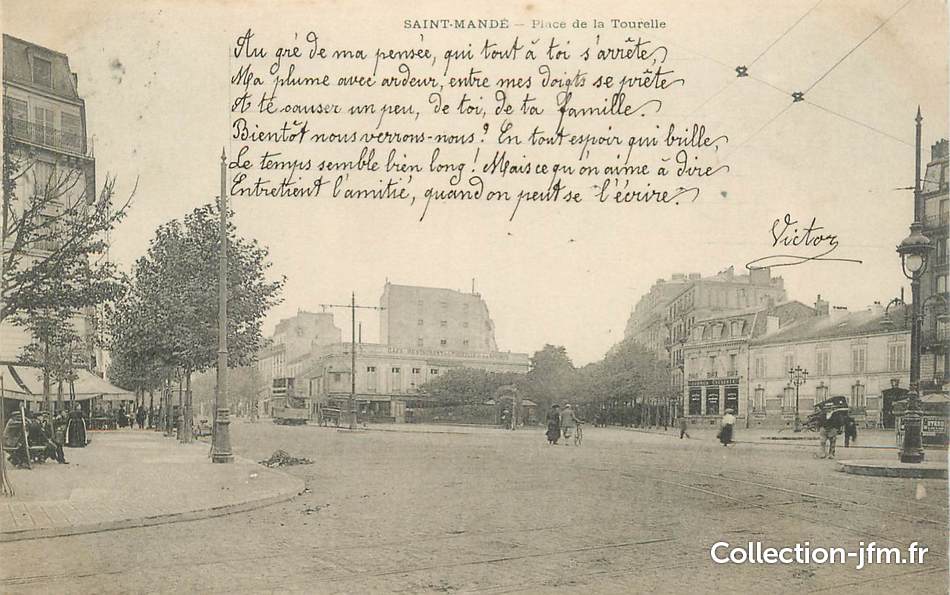 SAINT-MANDÉ — Place de la Tourelle
Au gré de ma pensée, qui tout à toi s'arrête,
Ma plume avec ardeur, entre mes doigts se prête
A te causer un peu, de toi, de ta famille.
Bientôt nous verrons-nous? En tout espoir qui brille,
Le temps semble bien long! Mais ce qu'on aime à dire
Entretient l'amitié, quand on peut se l'écrire.
Victor
CAFÉ RESTAURANT
Collection-jfm.fr